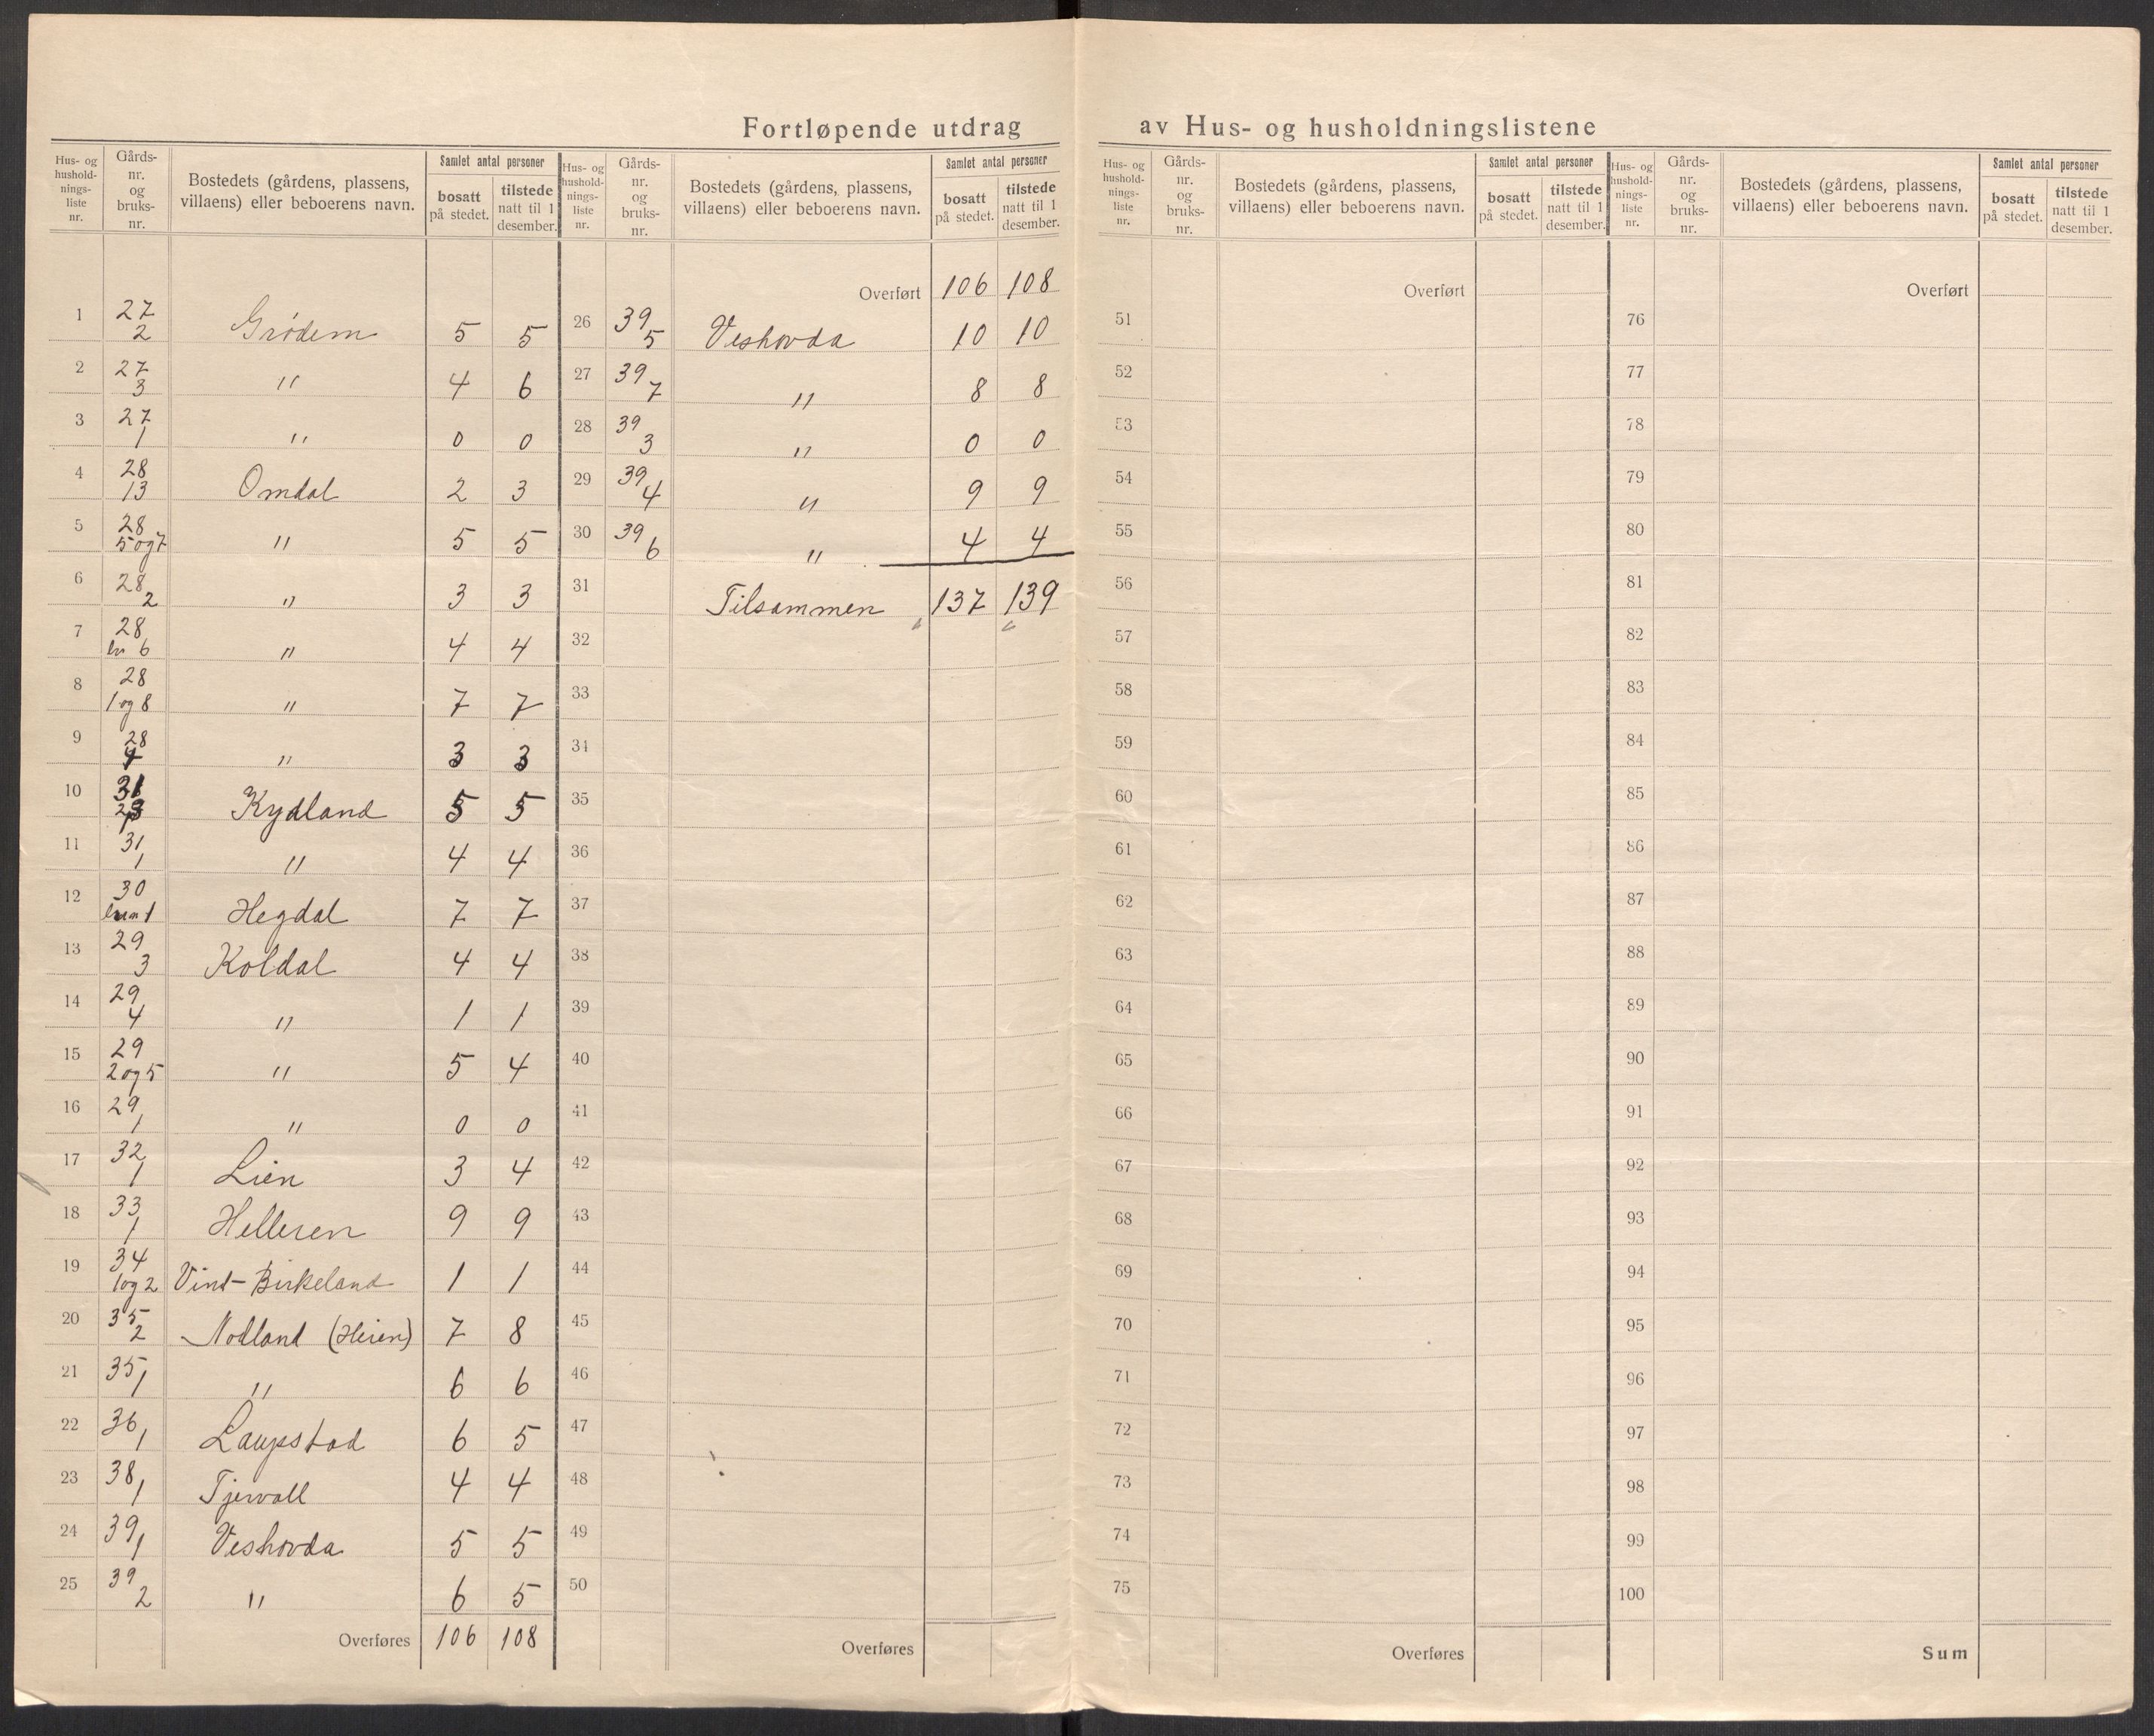 Fortløpende utdrag av Hus- og husholdningslistene
Hus- og hushold-nings-liste nr. | Gårds-nr. og bruks-nr. | Bostedets (gårdens, plassens, villaens) eller beboerens navn. | Samlet antal personer | bosatt på stedet. | tilstede natt til 1 desember.
1 | 27 2 | Grødem | 5 | 5
2 | 27 3 | " | 4 | 6
3 | 27 1 | " | 0 | 0
4 | 28 13 | Omdal | 2 | 3
5 | 28 5 og 7 | " | 5 | 5
6 | 28 2 | " | 3 | 3
7 | 28 br 6 | " | 4 | 4
8 | 28 1 og 8 | " | 7 | 7
9 | 28 4 | " | 3 | 3
10 | 31 | Kydland | 5 | 5
11 | 31 1 | " | 4 | 4
12 | 30 | Hegdal | 7 | 7
13 | 29 3 | Koldal | 4 | 4
14 | 29 4 | " | 1 | 1
15 | 29 2 og 5 | " | 5 | 4
16 | 29 1 | " | 0 | 0
17 | 32 1 | Lien | 3 | 4
18 | 33 1 | Helleren | 9 | 9
19 | 34 1 og 2 | Vint-Birkeland | 1 | 1
20 | 35 2 | Nodland (Heien) | 7 | 8
21 | 35 1 | " | 6 | 6
22 | 36 1 | Laupstad | 6 | 5
23 | 38 1 | Tjervall | 4 | 4
24 | 39 1 | Veshovda | 5 | 5
25 | 39 2 | " | 6 | 5
Overføres | 106 | 108
Hus- og hushold-nings-liste nr. | Gårds-nr. og bruks-nr. | Bostedets (gårdens, plassens, villaens) eller beboerens navn. | Samlet antal personer | bosatt på stedet. | tilstede natt til 1 desember.
Overført | 106 | 108
26 | 39 5 | Veshovda | 10 | 10
27 | 39 7 | " | 8 | 8
28 | 39 3 | " | 0 | 0
29 | 39 4 | " | 9 | 9
30 | 39 6 | " | 4 | 4
31 | Tilsammen | 137 | 139
32
33
34
35
36
37
38
39
40
41
42
43
44
45
46
47
48
49
50
Overføres
Hus- og hushold-nings-liste nr. | Gårds-nr. og bruks-nr. | Bostedets (gårdens, plassens, villaens) eller beboerens navn. | Samlet antal personer | bosatt på stedet. | tilstede natt til 1 desember.
Overført
51
52
53
54
55
56
57
58
59
60
61
62
63
64
65
66
67
68
69
70
71
72
73
74
75
Overføres
Hus- og hushold-nings-liste nr. | Gårds-nr. og bruks-nr. | Bostedets (gårdens, plassens, villaens) eller beboerens navn. | Samlet antal personer | bosatt på stedet. | tilstede natt til 1 desember.
Overført
76
77
78
79
80
81
82
83
84
85
86
87
88
89
90
91
92
93
94
95
96
97
98
99
100
Sum